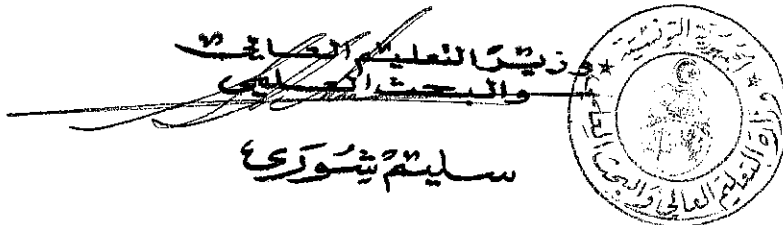 وزير التعليم العالي
والبحث العلمي
سليم شورى
الجمهورية التونسية
وزارة التعليم العالي والبحث العلمي